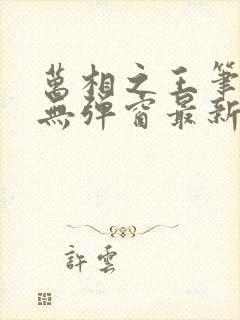 萬相之王筆
無彈窗最新
許雲